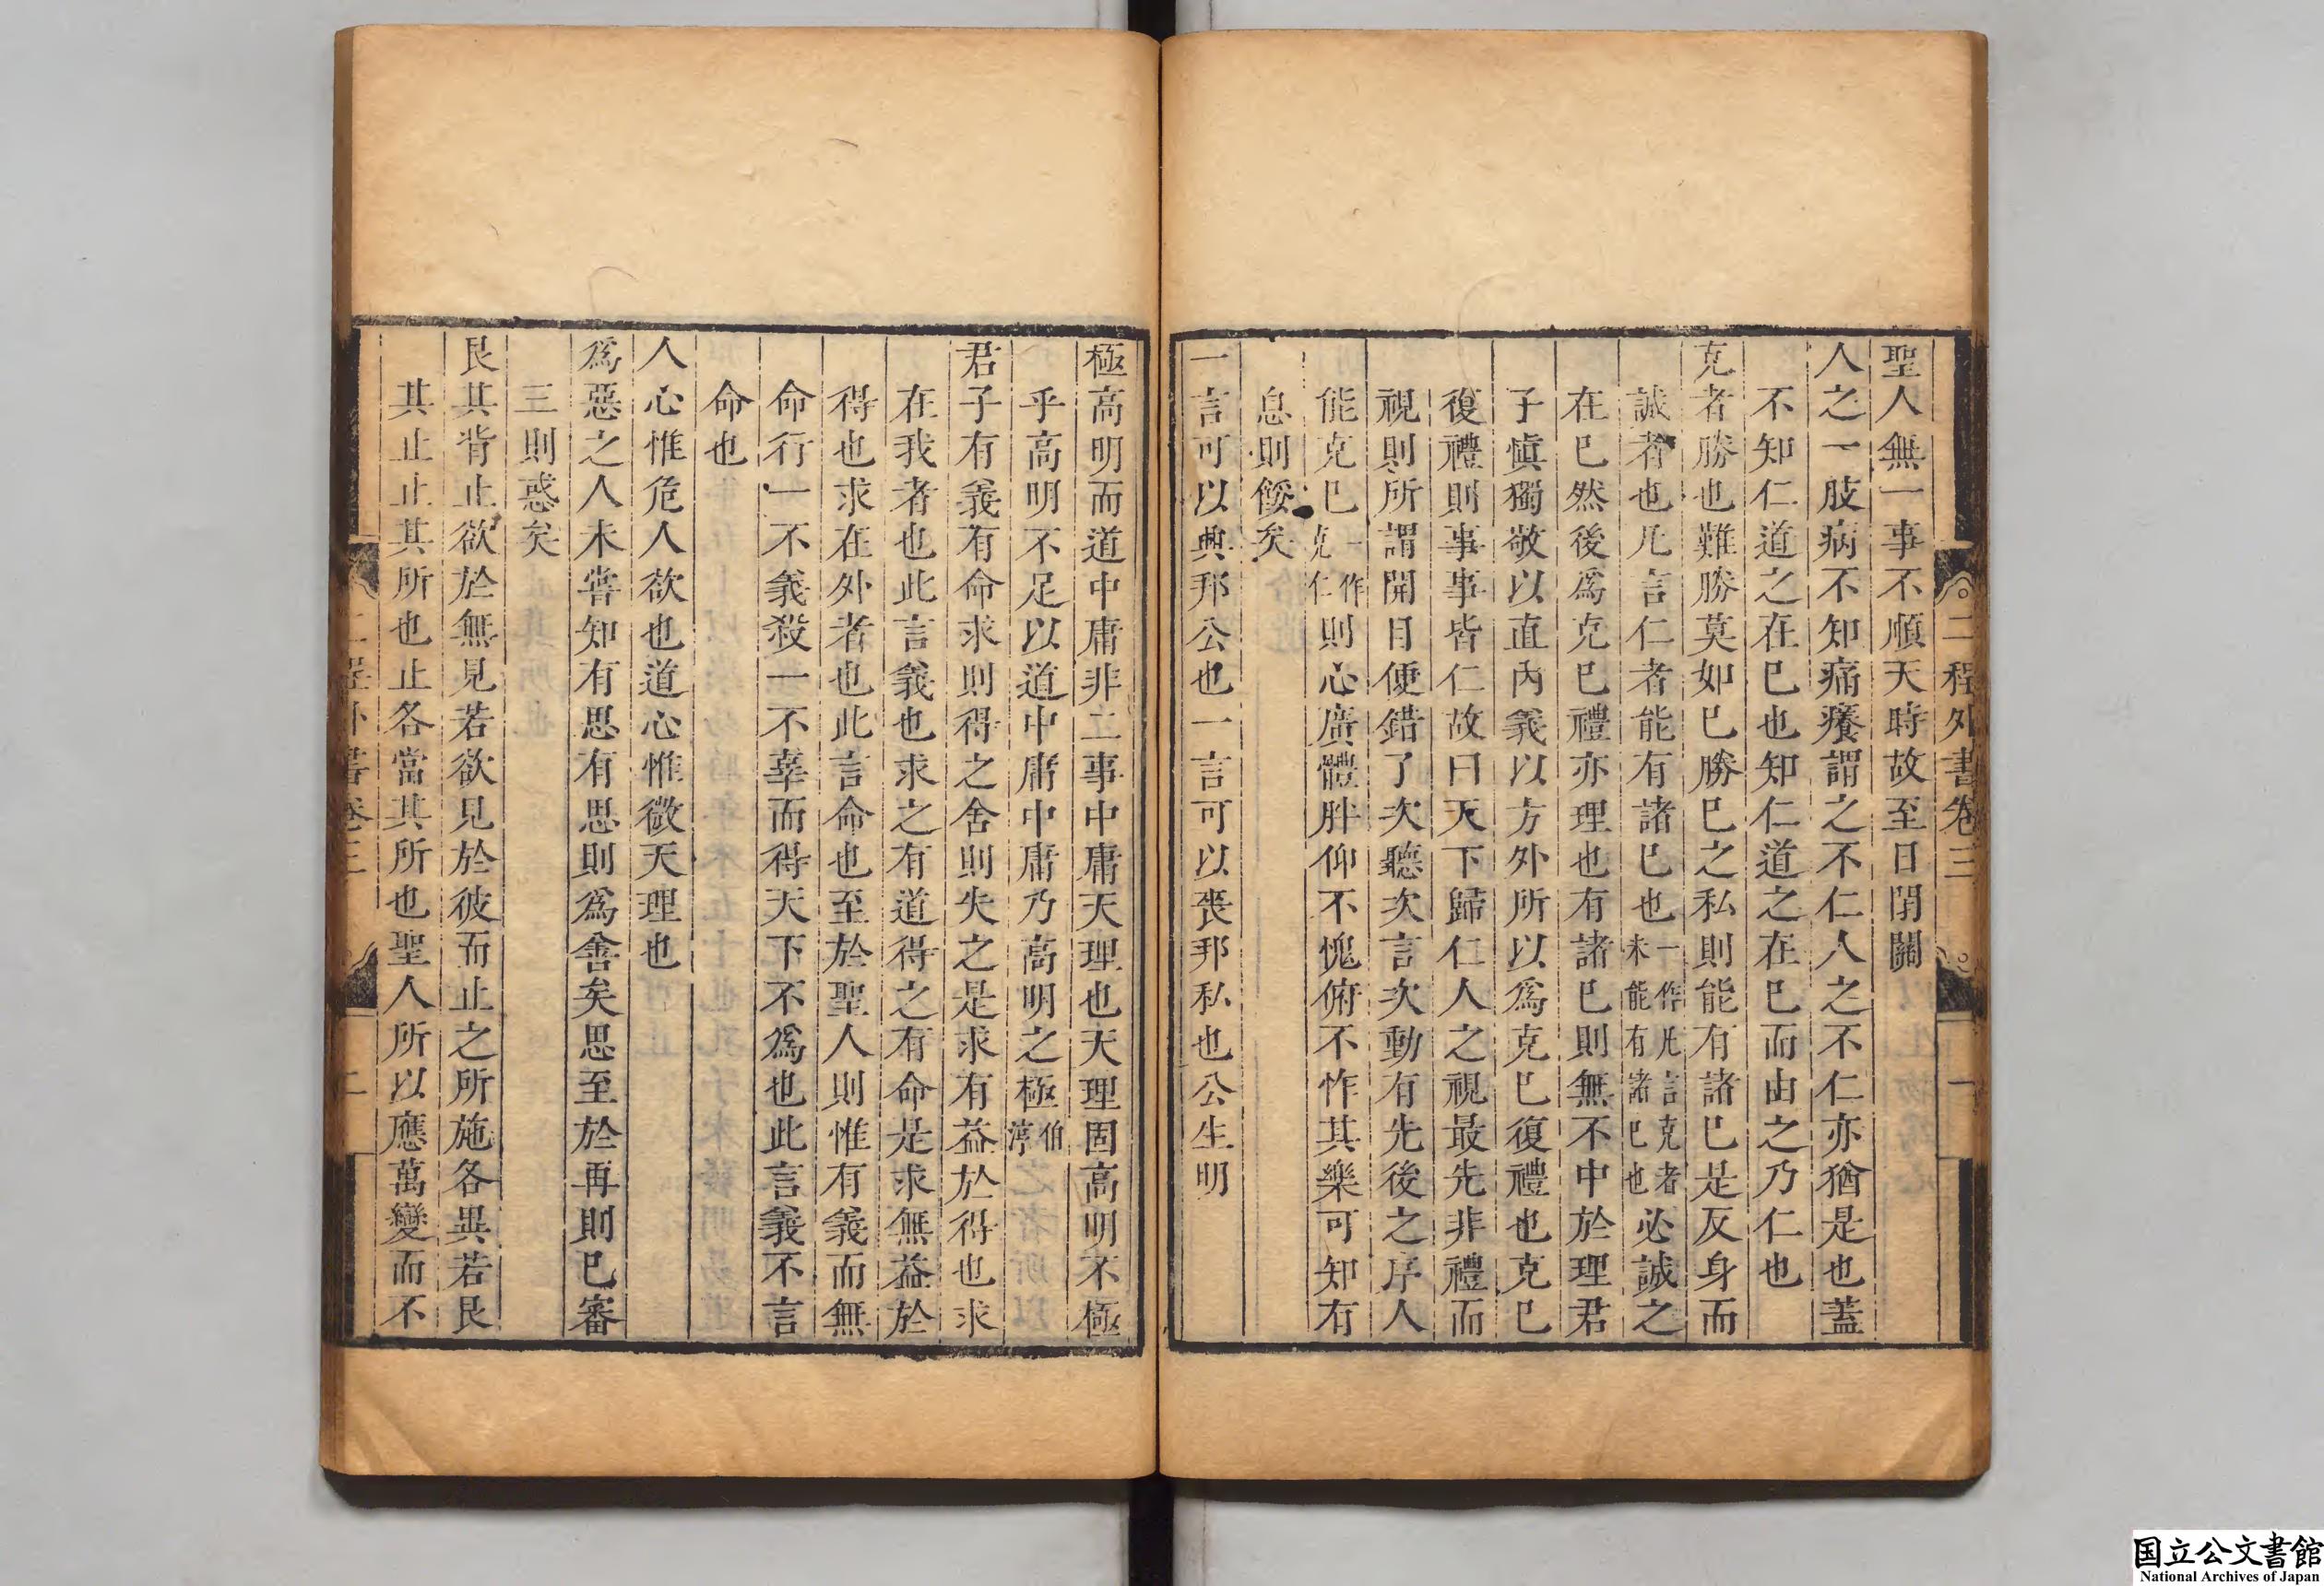 二程外書卷三
一
聖人無一事不順天時故至日閉關
人之一肢病不知痛癢謂之不仁人之不仁亦猶是也蓋
不知仁道之在己也知仁道之在己而由之乃仁也
克者勝也難勝莫如己勝己之私則能有諸己是反身而
誠者也凡言仁者能有諸己也一作凡言克者未能有諸己也必誠之
在己然後爲克己禮亦理也有諸己則無不中於理君
子愼獨敬以直內義以方外所以爲克己復禮也克己
復禮則事事皆仁故曰天下歸仁人之視最先非禮而
視則所謂開目便錯了次聽次言次動有先後之序人
能克己一作克仁則心廣體胖仰不愧俯不怍其樂可知有
息則餒矣
一言可以興邦公也一言可以喪邦私也公生明
極高明而道中庸非二事中庸天理也天理固高明不極
乎高明不足以道中庸中庸乃高明之極伯淳
君子有義有命求則得之舍則失之是求有益於得也求
在我者也此言義也求之有道得之有命是求無益於
得也求在外者也此言命也至於聖人則惟有義而無
命行一不義殺一不辜而得天下不爲也此言義不言
命也
人心惟危人欲也道心惟微天理也
爲惡之人未嘗知有思有思則爲善矣思至於再則已審
三則惑矣
艮其背止欲於無見若欲見於彼而止之所施各異若艮
其止止其所也止各當其所也聖人所以應萬變而不
二程外書卷三
二
国立公文書館
National Archives of Japan